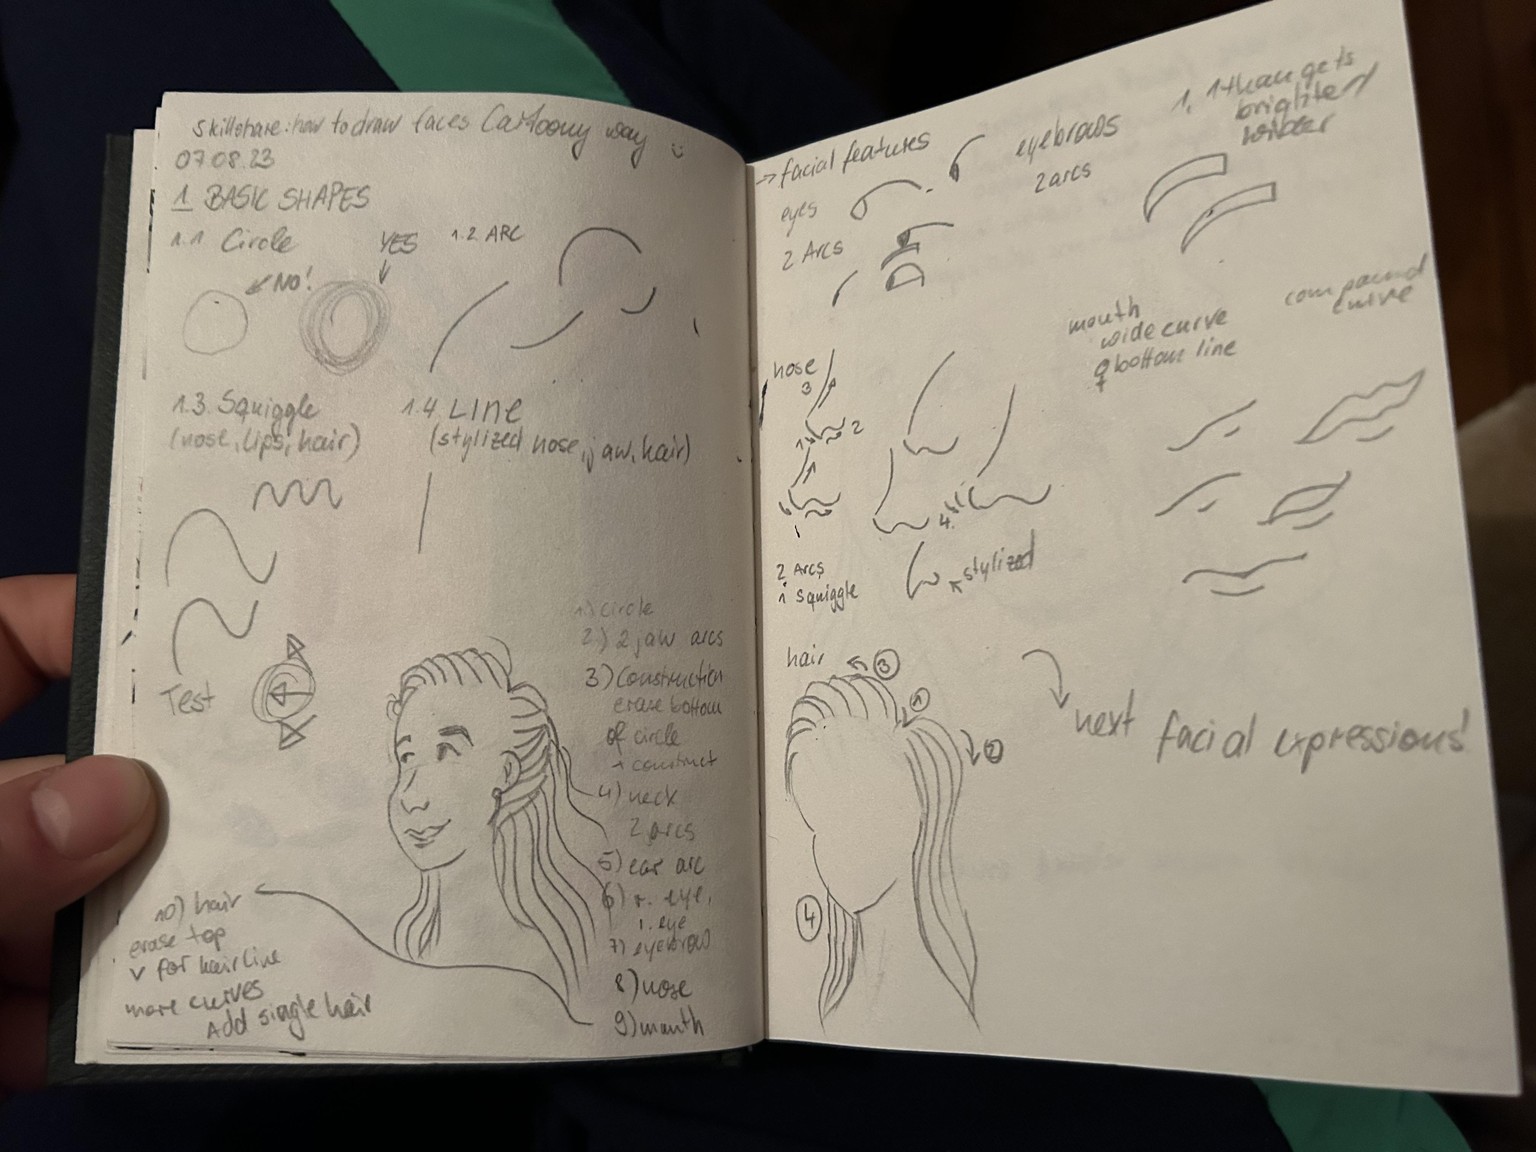 skillshare: how to draw faces Cartoony way
07.08.23
1 BASIC SHAPES
1.1 Circle
NO!
YES
1.2 ARC
1.3. Squiggle
(nose, lips, hair)
1.4. LINE
(stylized nose, jaw, hair)
Test
1) circle
2.) 2 jaw arcs
3) Construction
erase bottom
of circle
construct
4) neck
2 arcs
5) ear arc
6) r. eye,
l. eye
7) eyebrow
8) nose
9) mouth
10) hair
erase top
v for hairline
more curves
Add single hair
→ facial features
eyes
2 Arcs
eyebrows
2 arcs
1. than gets
nose
3
1
2
1
4.
2 Arcs
1 squiggle
stylized
mouth
wide curve
♀ bottom line
compound
curve
hair
3
1
2
4
next facial expressions!